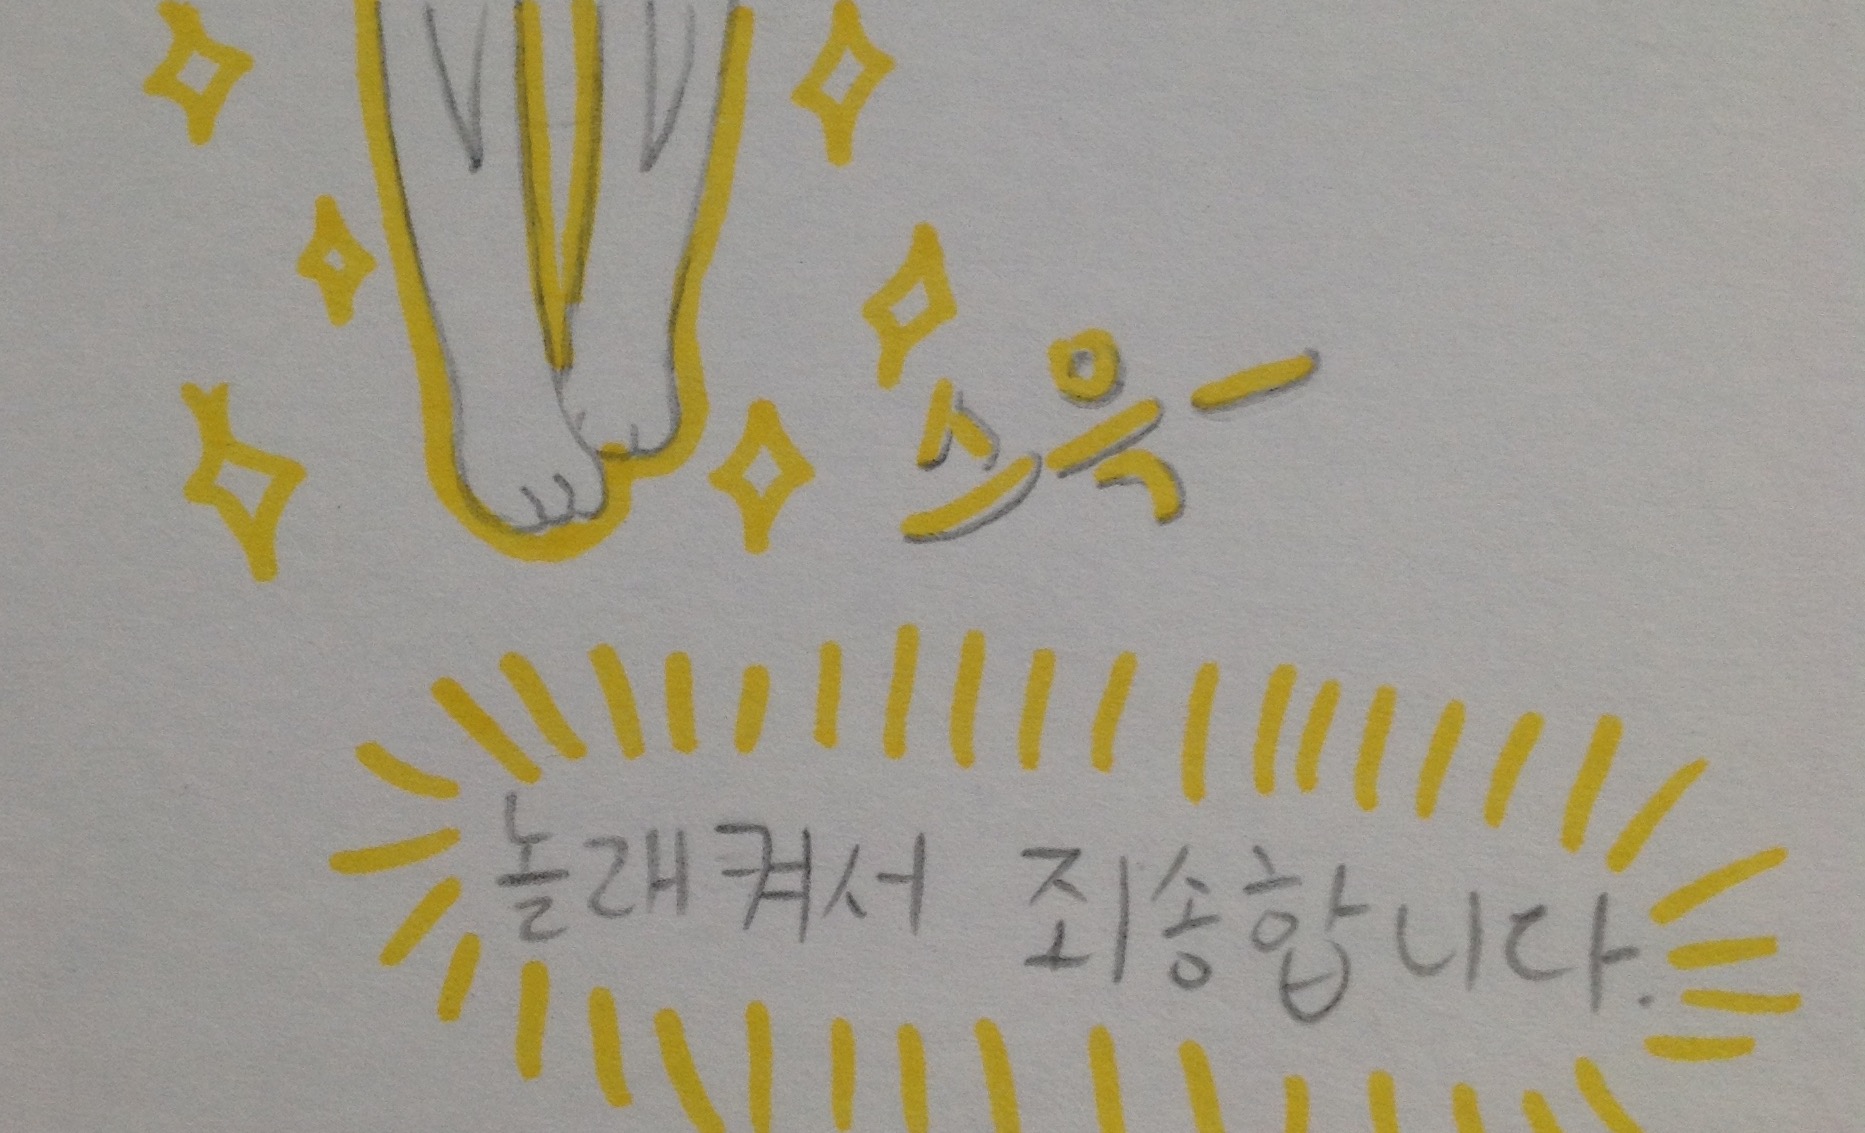 스윽-
놀래켜서 죄송합니다.